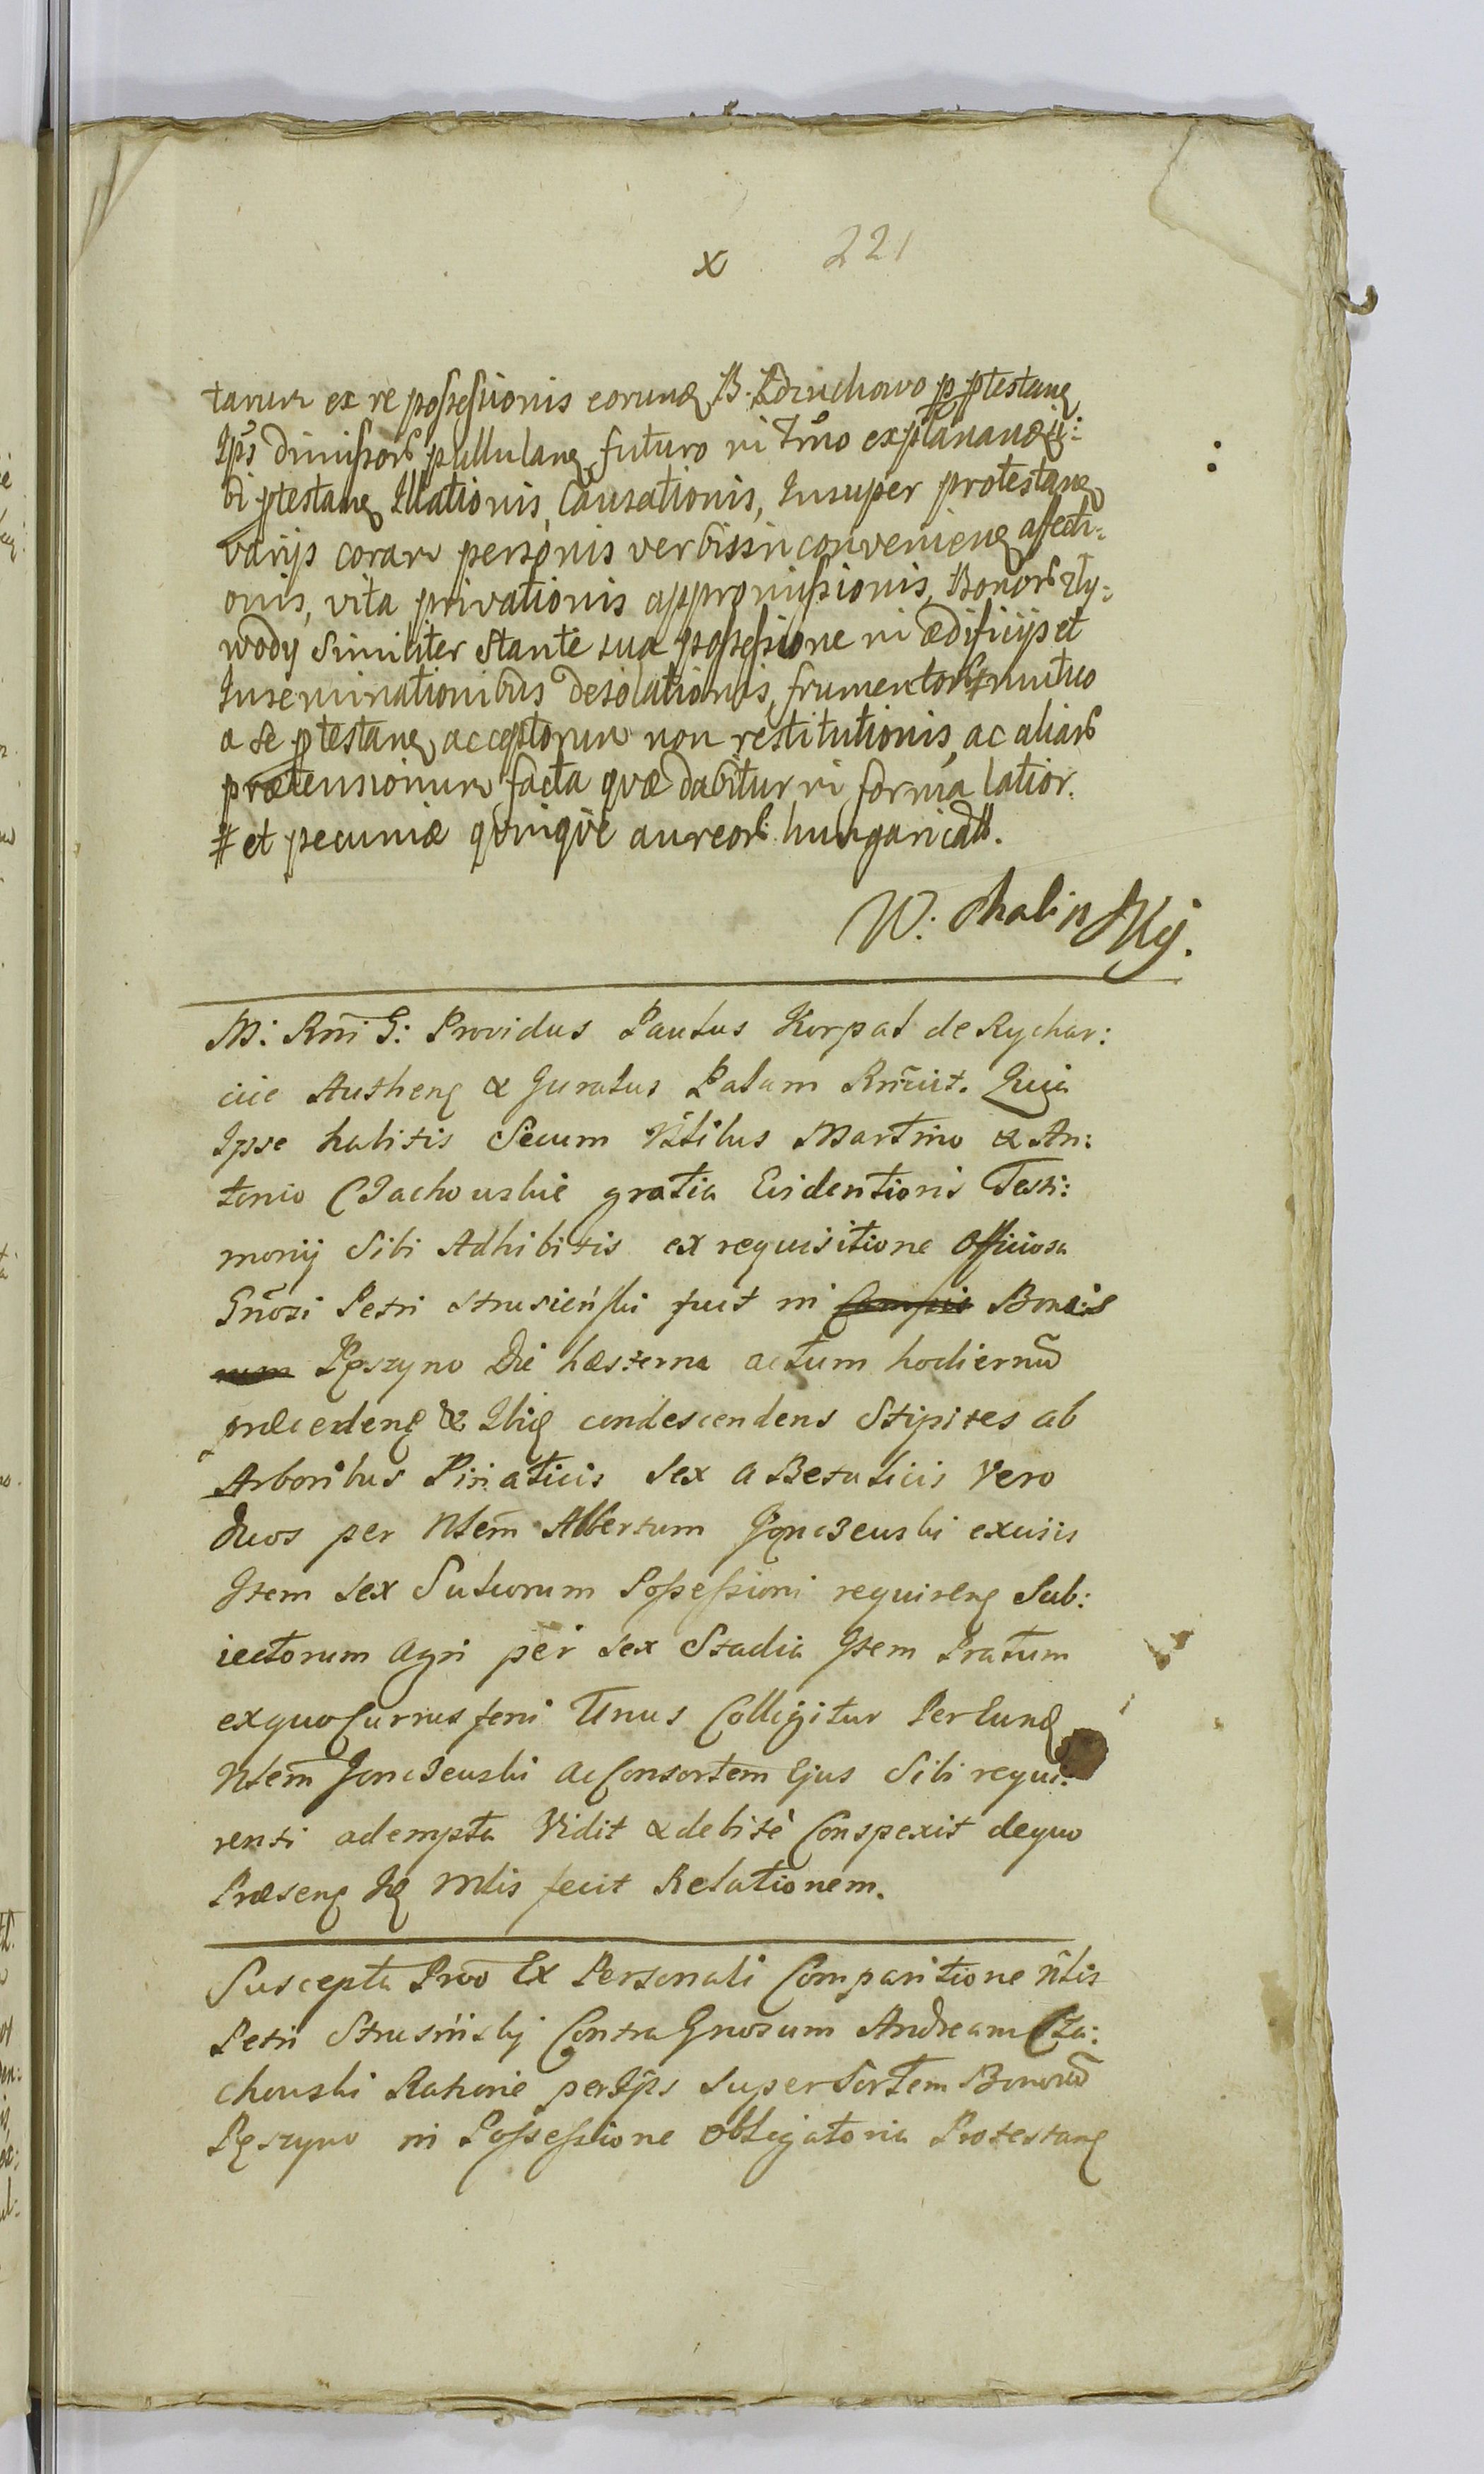 x 221
tarum ex re possessionis eorund B. Zdziechowo p ptestan
Ips dimissor pullulan, futuro in Trno explanand
ptestan Illationis, Causationis, Insuper protestan
varijs coram personis verbis inconvenien affecti=
onis, vita privationis appromissionis, Bonor
wody Similiter stante sua possessione in ædificijs et
Inseminationibus desolationis, frumentor # mutuo
a se ptestan, acceptorum non restitutionis, ac aliar
prætensionum facta quæ dabitur in forma latior.
# et pecuniæ quinque aureor hungarical.
W: Chalinskij.
M: Rni G: Providus Paulus Korpal de Rychar:
cice Authen & Juratus Palam Rncuit. Quia
Ipse habitis Secum Nbilibus Martino & An:
tonio Czachowskie gratia Evidentioris Testi:
monij Sibi Adhibitis ex requisitione Officiosa
Gnosi Petri Strusieński fuit in Campis Bonis
Rpszyno Die hæsterna actum hodiernu
præceden & Ibiq condescendens Stipites ab
Arboribus Piniaticis Sex a Betulicis Vero
duos per Nlem Albertum Gonczewski excisis
Item Sex Sulcorum Possessioni requiren Sub:
iectorum Agri per Sex Stadia Item Pratum
ex quo Currus feni Unus Colligitur Per Eund
Nlem Jonczewski ac Consortem Ejus Sibi requi:
renti adempta Vidit & debite Conspexit de quo
Præsen Jq Mlis fecit Relationem.
Suscepta Prõo Ex Personali Comparitione Nlis
Petri Strusińskij Contra Gnosum Andream Cza:
chowski Ratione per Ips super Sortem Bonoru
Rpszyno in Possessione obligatoria Protestan